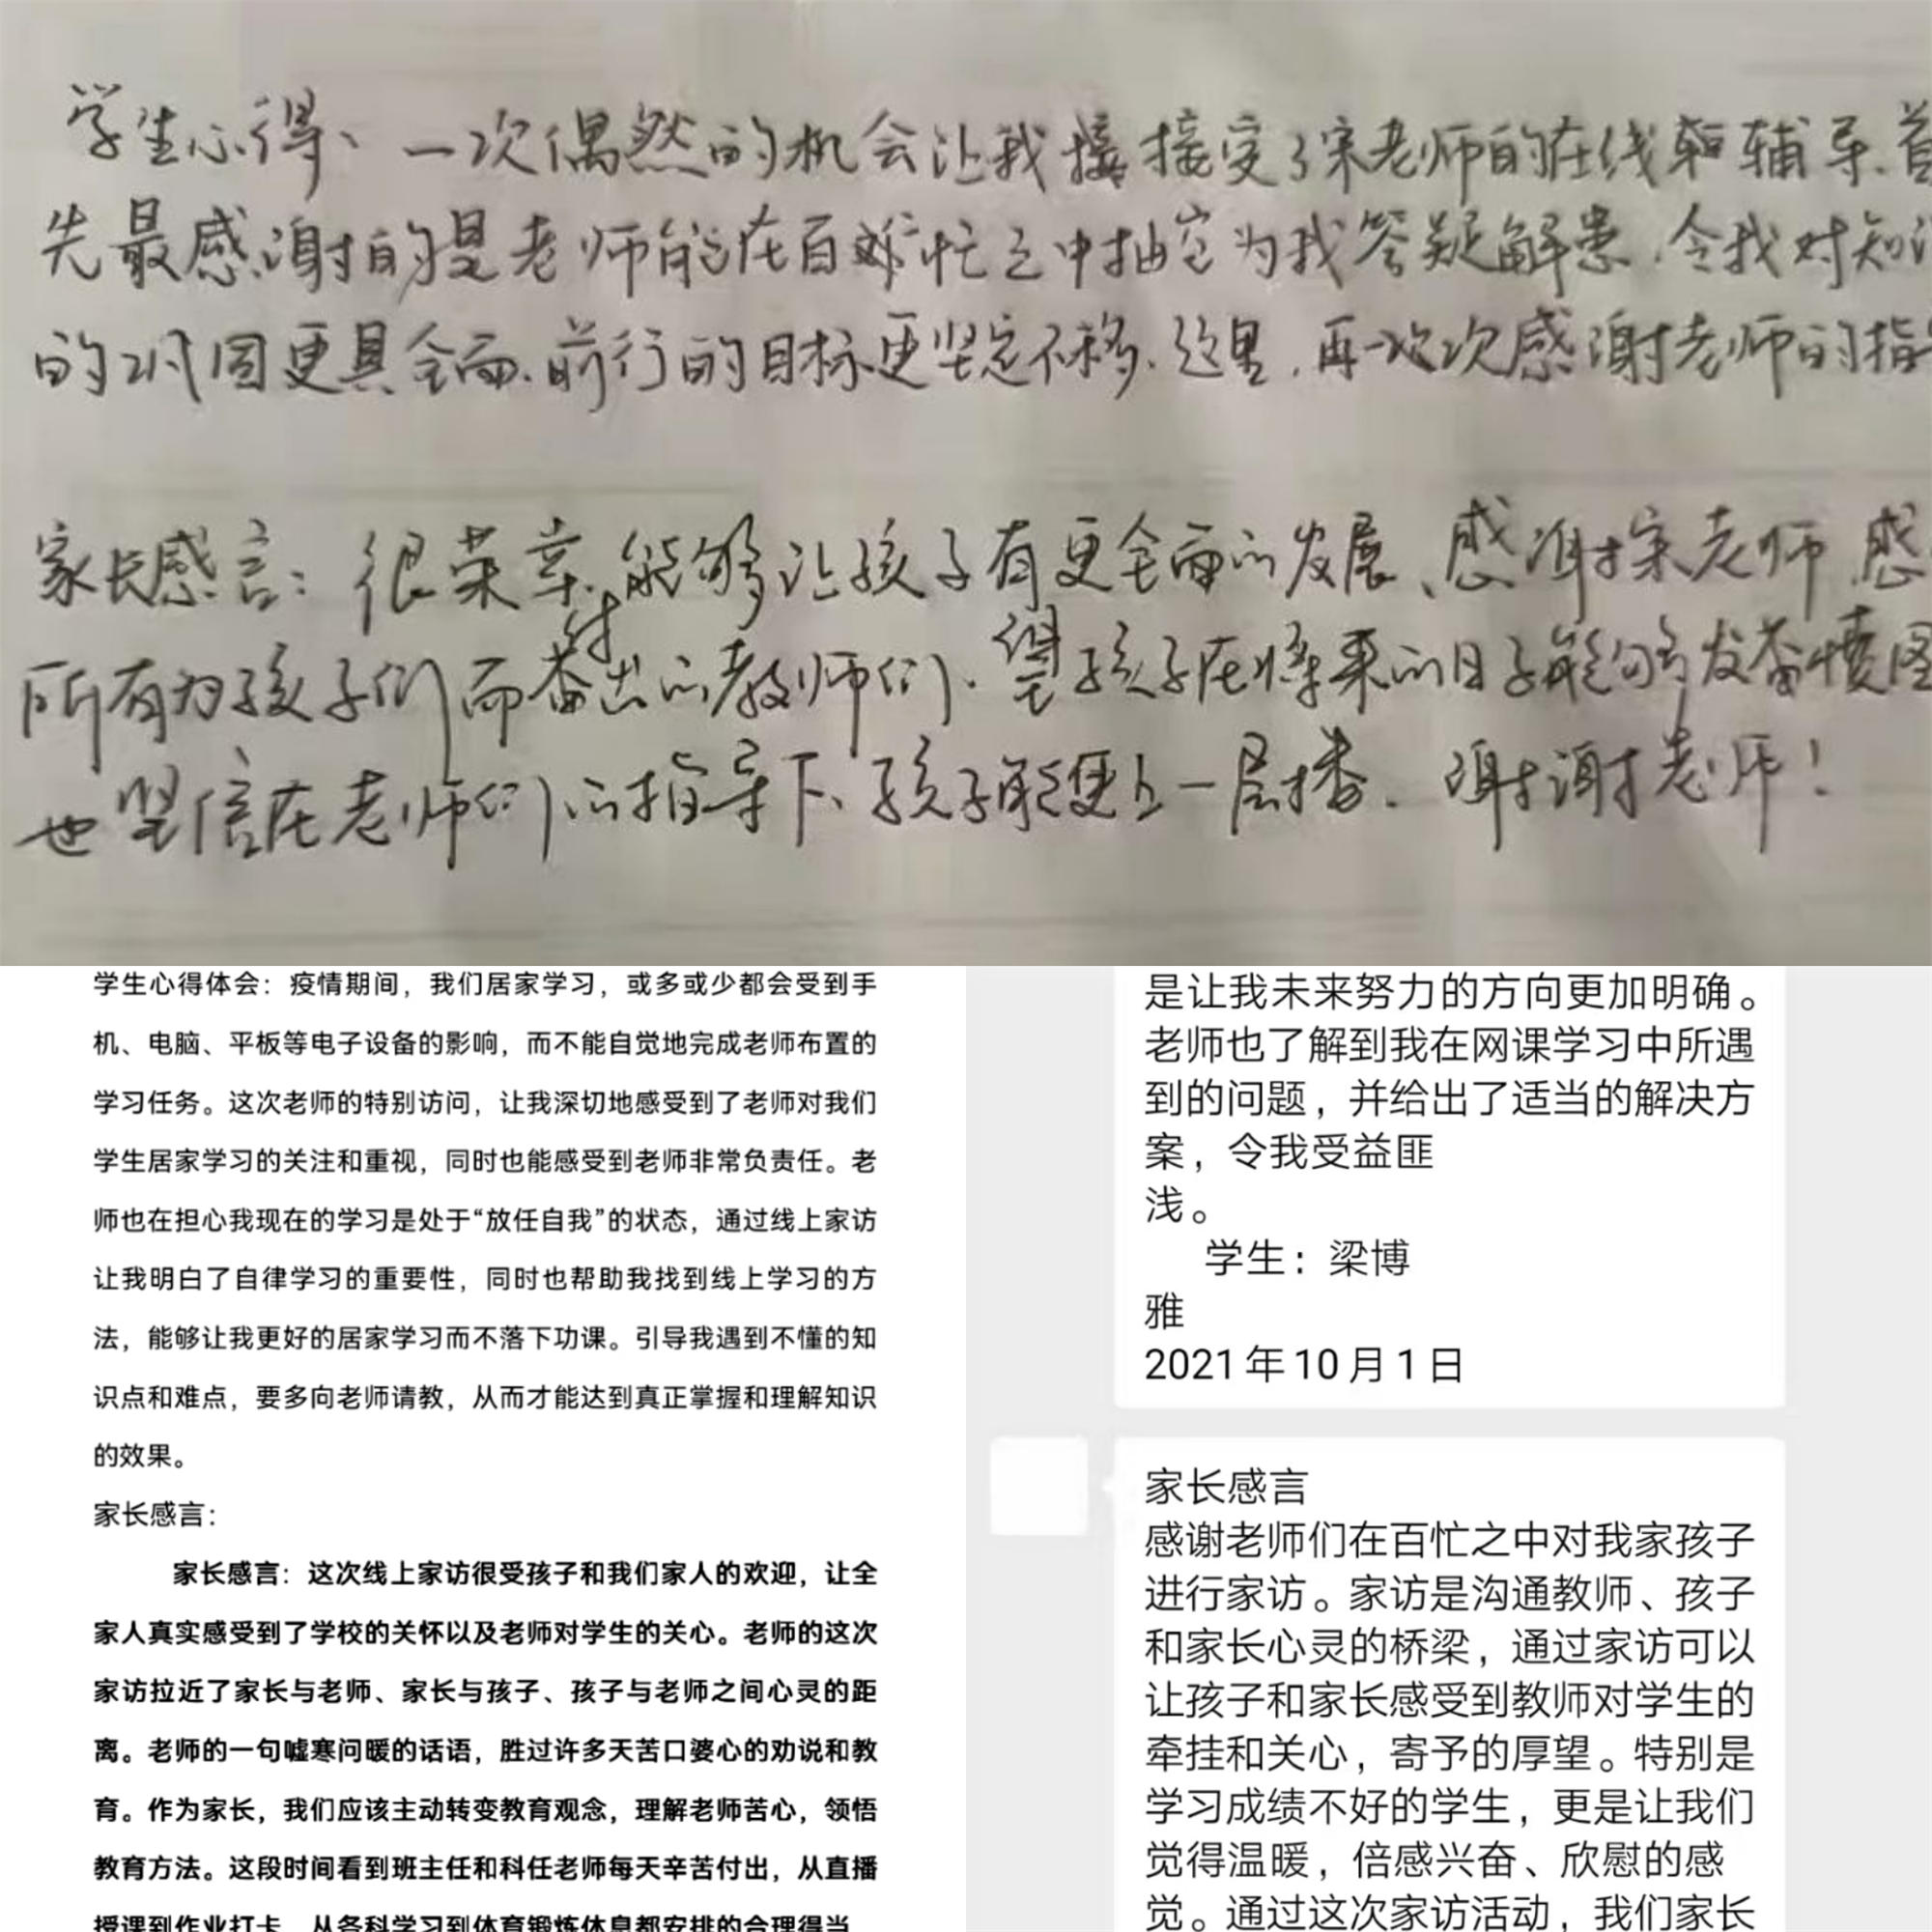 学生心得、一次偶然的机会让我接受了宋老师的在线辅导.首
先最感谢的是老师能在百忙之中抽空为我答疑解患.令我对知识
的巩固更具全面.前行的目标更坚定不移.这里.再一次次感谢老师的指
家长感言：很荣幸.能够让孩子有更全面的发展、感谢宋老师.感
所有为孩子们而付出的教师们.望孩子在将来的日子能够发奋愤图
也坚信在老师们的指导下、孩子能更上一层楼.谢谢老师！
学生心得体会：疫情期间，我们居家学习，或多或少都会受到手
机、电脑、平板等电子设备的影响，而不能自觉地完成老师布置的
学习任务。这次老师的特别访问，让我深切地感受到了老师对我们
学生居家学习的关注和重视，同时也能感受到老师非常负责任。老
师也在担心我现在的学习是处于“放任自我”的状态，通过线上家访
让我明白了自律学习的重要性，同时也帮助我找到线上学习的方
法，能够让我更好的居家学习而不落下功课。引导我遇到不懂的知
识点和难点，要多向老师请教，从而才能达到真正掌握和理解知识
的效果。
家长感言：
家长感言：这次线上家访很受孩子和我们家人的欢迎，让全
家人真实感受到了学校的关怀以及老师对学生的关心。老师的这次
家访拉近了家长与老师、家长与孩子、孩子与老师之间心灵的距
离。老师的一句嘘寒问暖的话语，胜过许多天苦口婆心的劝说和教
育。作为家长，我们应该主动转变教育观念，理解老师苦心，领悟
教育方法。这段时间看到班主任和科任老师每天辛苦付出，从直播
授课到作业打卡，从各科学习到体育锻炼休息都安排的合理得当，
是让我未来努力的方向更加明确。
老师也了解到我在网课学习中所遇
到的问题，并给出了适当的解决方
案，令我受益匪
浅。
学生：梁博
雅
2021年10月1日
家长感言
感谢老师们在百忙之中对我家孩子
进行家访。家访是沟通教师、孩子
和家长心灵的桥梁，通过家访可以
让孩子和家长感受到教师对学生的
牵挂和关心，寄予的厚望。特别是
学习成绩不好的学生，更是让我们
觉得温暖，倍感兴奋、欣慰的感
觉。通过这次家访活动，我们家长